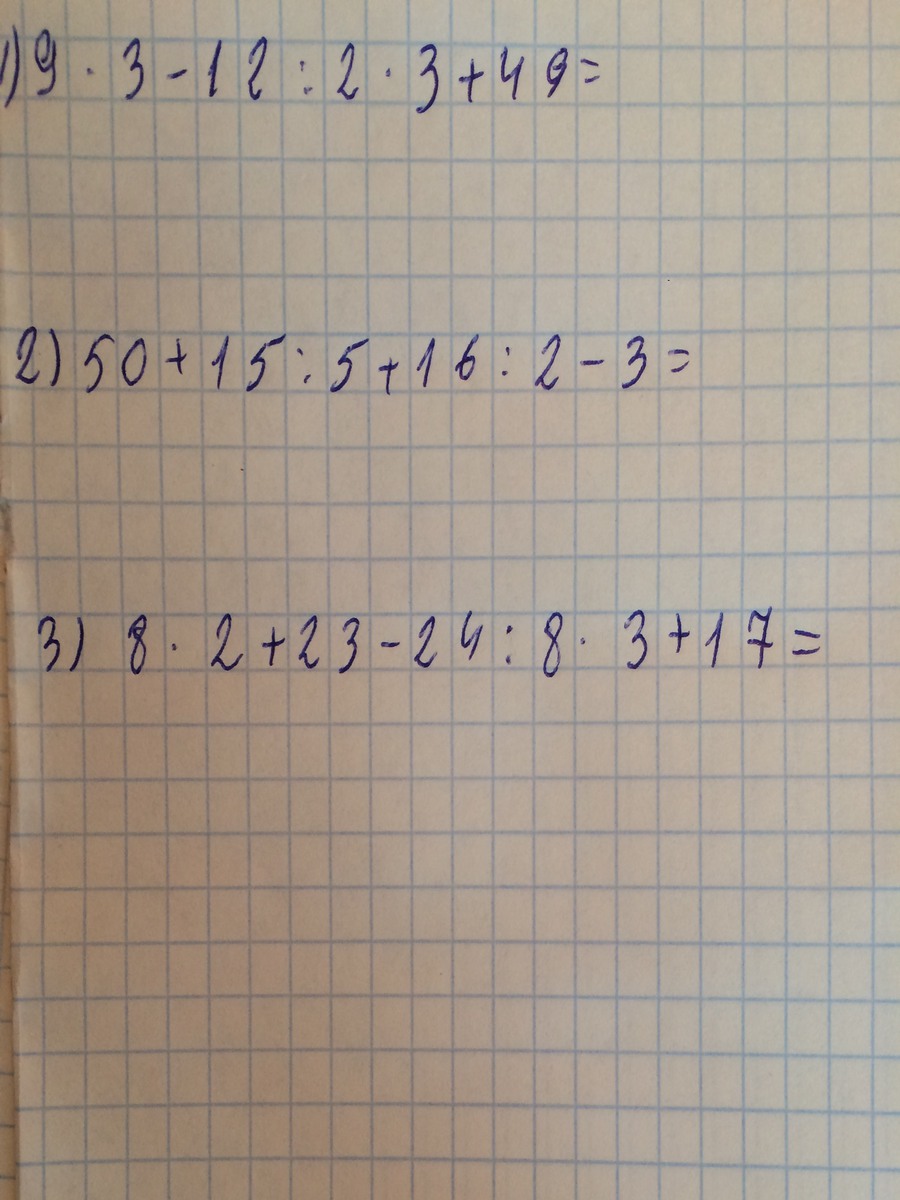 1) 9 · 3 - 12 : 2 · 3 + 49 =
2) 50 + 15 : 5 + 16 : 2 - 3 =
3) 8 · 2 + 23 - 24 : 8 · 3 + 17 =